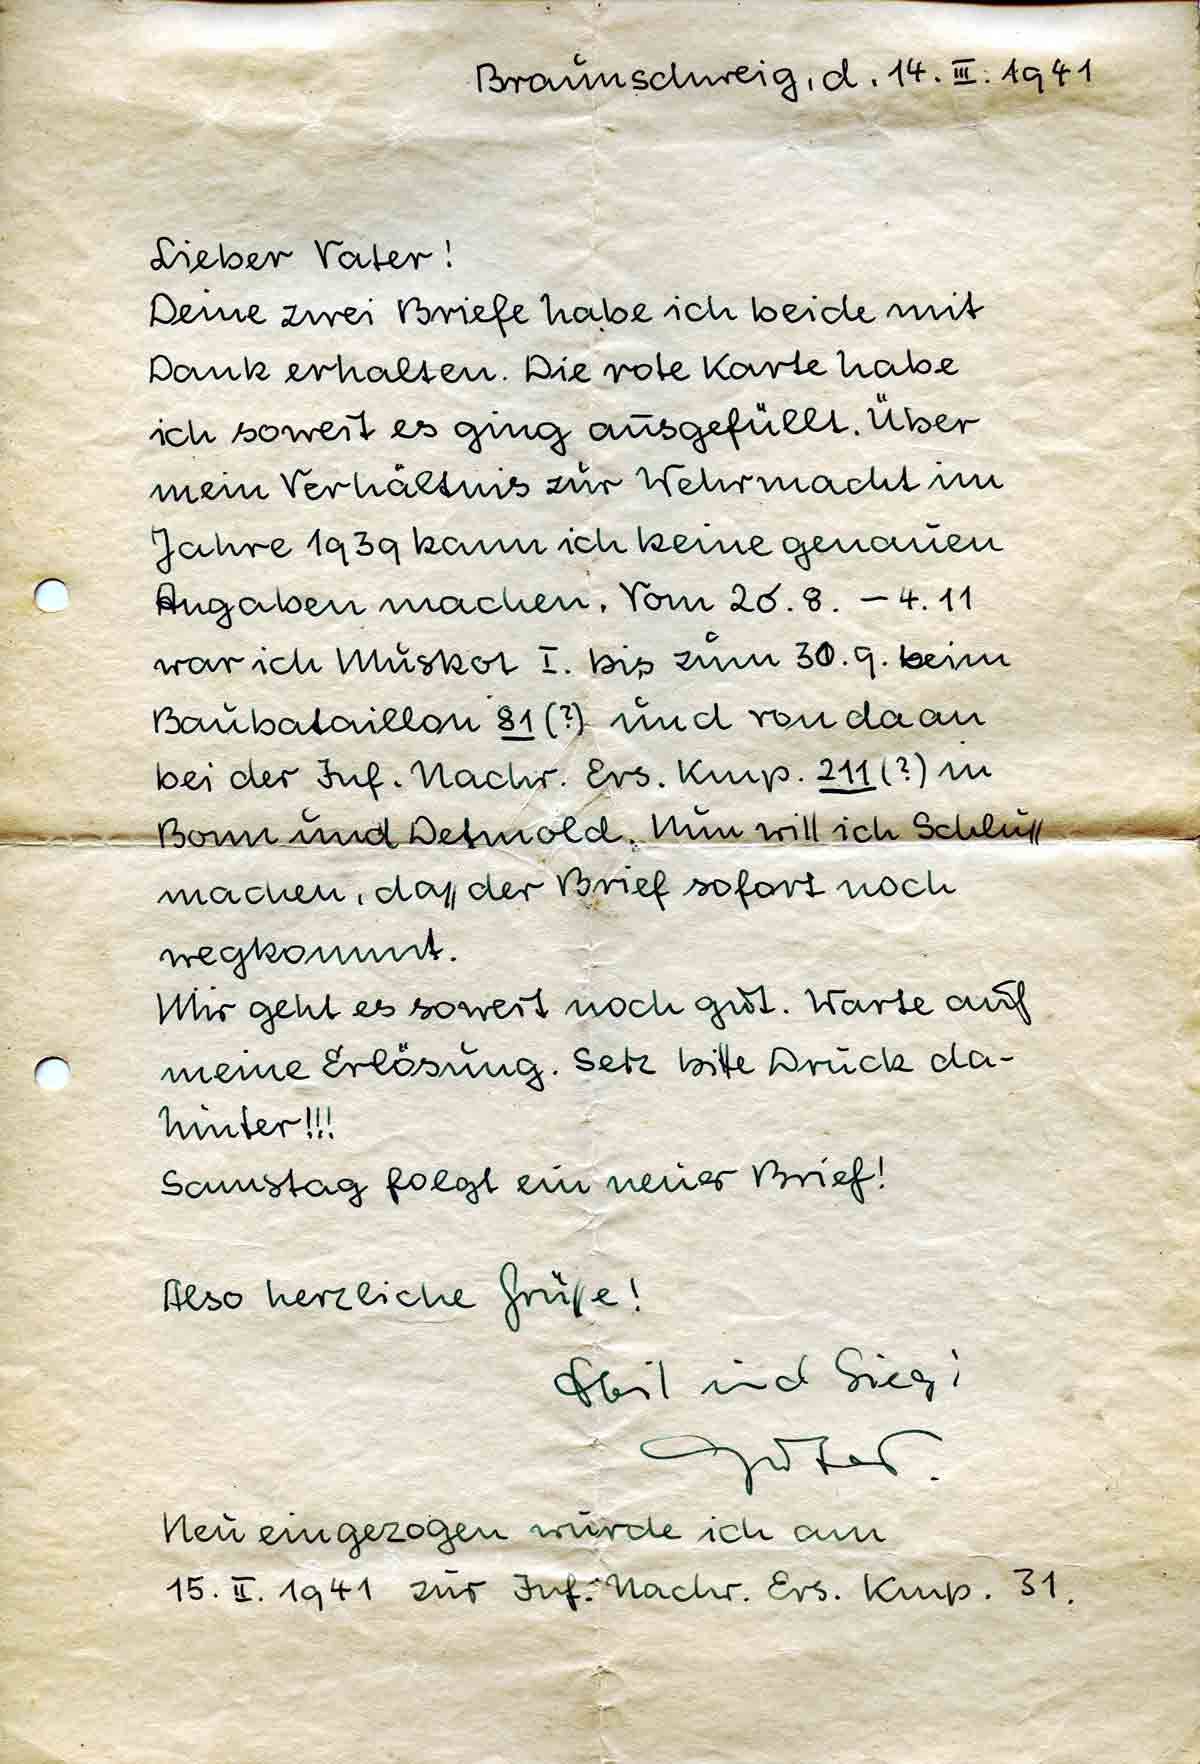 Braunschweig, d. 14. III. 1941
Lieber Vater!
Deine zwei Briefe habe ich beide mit
Dank erhalten. Die rote Karte habe
ich soweit es ging ausgefüllt. Über
mein Verhältnis zur Wehrmacht im
Jahre 1939 kann ich keine genauen
Angaben machen. Vom 26.8. – 4.11
war ich Muskot I. bis zum 30.9. beim
Baubataillon 81 (?) und von da an
bei der Inf. Nachr. Ers. Kmp. 211 (?) in
Bonn und Detmold. Nun will ich Schluß
machen, daß der Brief sofort noch
wegkommt.
Mir geht es soweit noch gut. Warte auf
meine Erlösung. Setz bitte Druck da-
hinter!!!
Samstag folgt ein neuer Brief!
Also herzliche Grüße!
Heil und Sieg!
Neu eingezogen wurde ich am
15. II. 1941 zur Inf. Nachr. Ers. Kmp. 31.